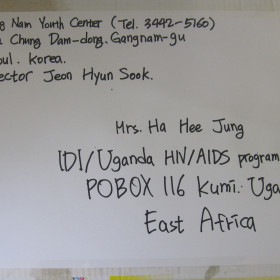 Nam Youth Center (Tel. 3442-5160)
Chung Dam-dong. Gangnam-gu
oul. Korea.
ector Jeon Hyun Sook.
Mrs. Ha Hee Jung
IDI/Uganda HN/AIDS program
POBOX 116 Kumi. Uga
East Africa